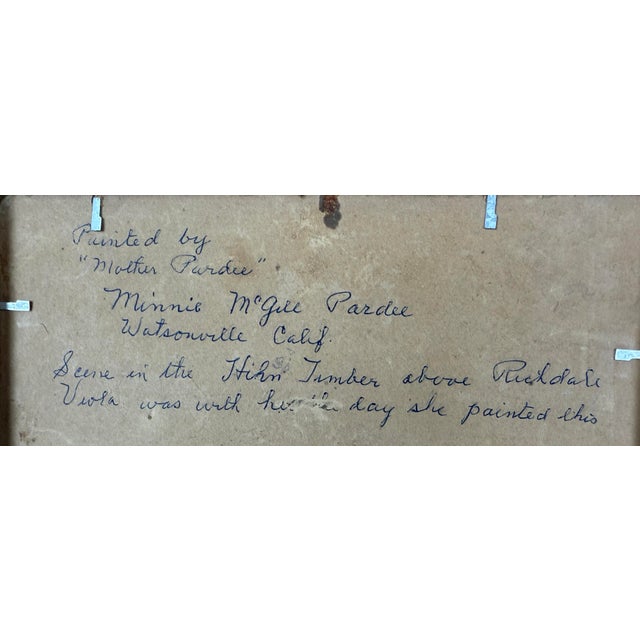 Painted by
"Mother Pardee"
Minnie McGee Pardee
Watsonville Calif.
Scene in the Hihn Timber above
Viola was with her the day she painted this